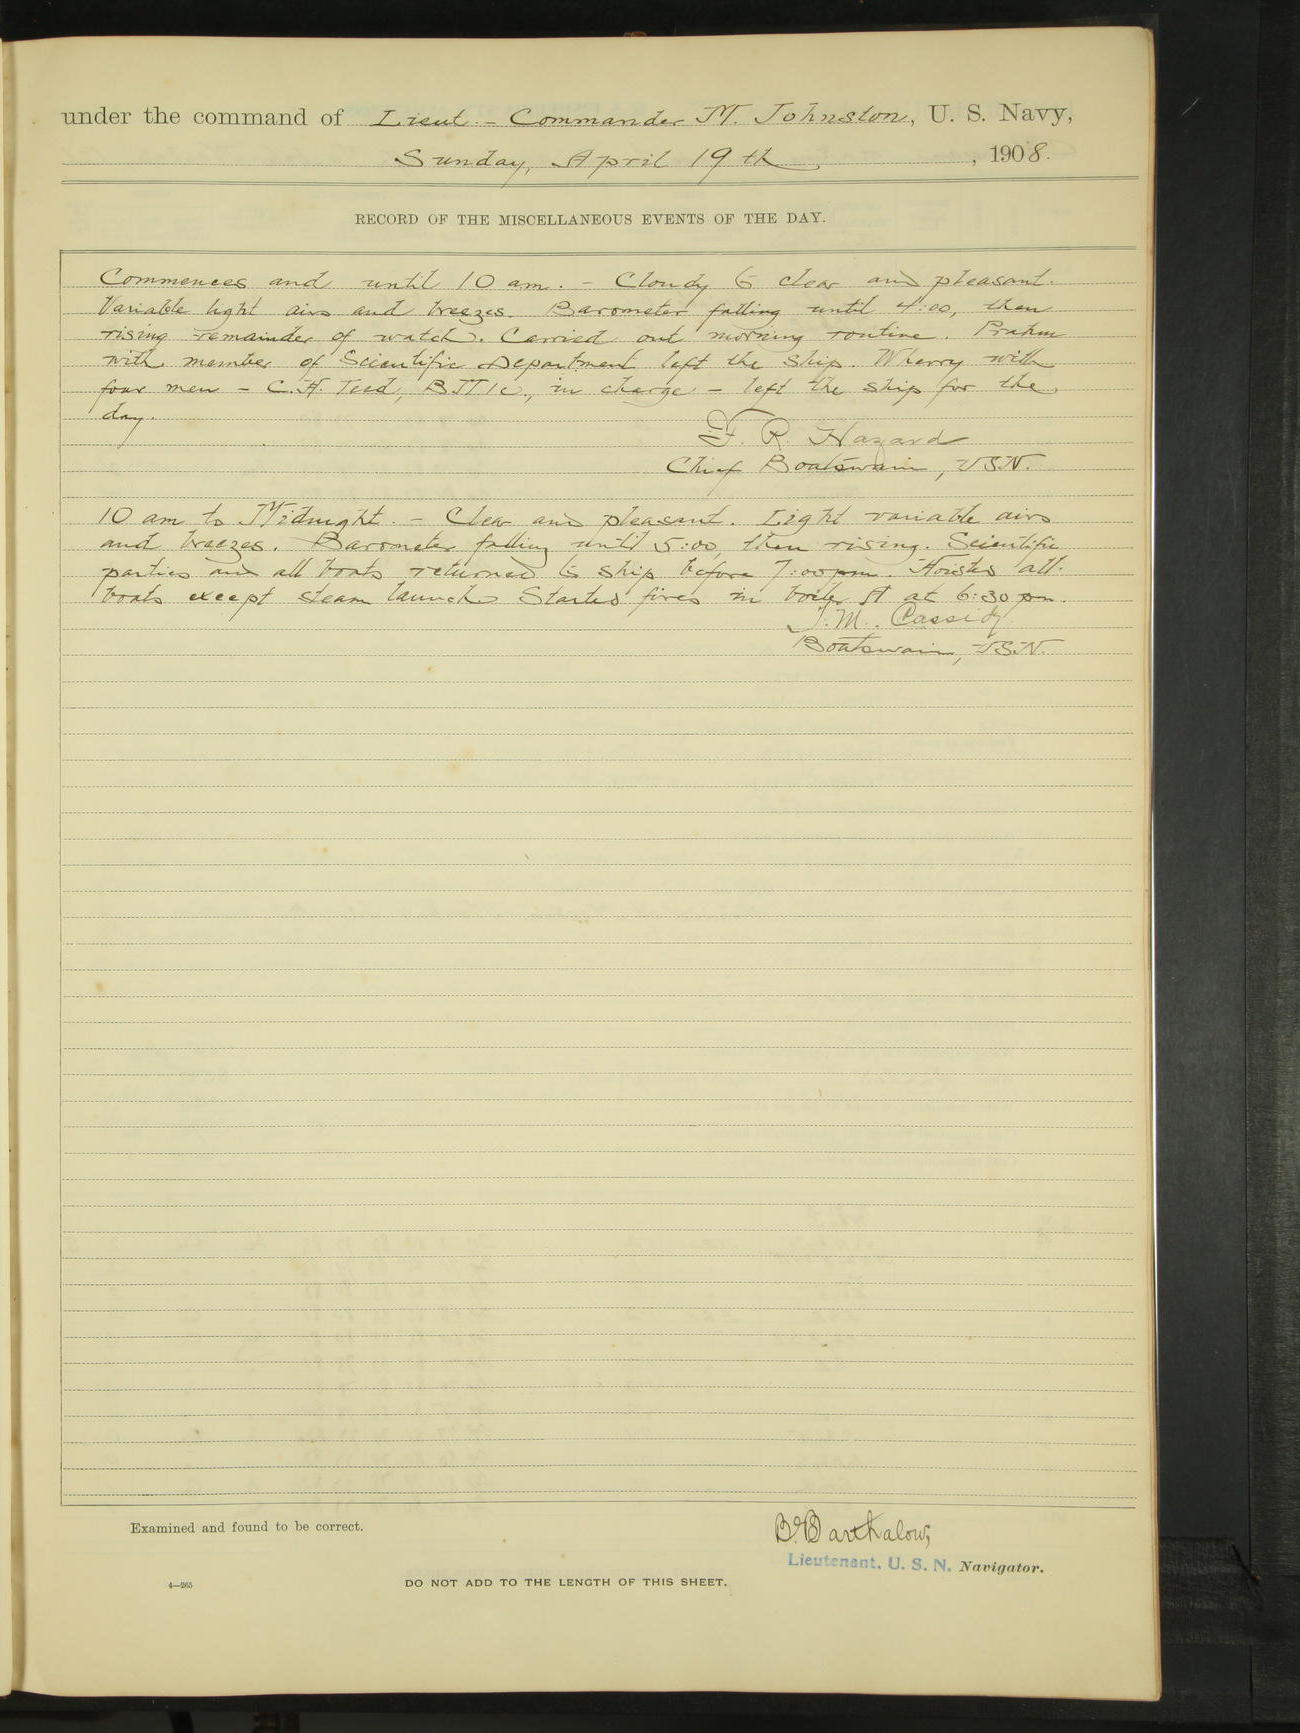 under the command of Lieut.-Commander M. Johnston, U. S. Navy,
Sunday, April 19th, 1908.
RECORD OF THE MISCELLANEOUS EVENTS OF THE DAY.
Commences and until 10 am. - Cloudy to clear and pleasant.
Variable light airs and breezes. Barometer falling until 4:00, then
rising remainder of watch. Carried out morning routine. Prahm
with member of Scientific Department left the ship. Wherry with
four men - C. H. Teed, BM1c., in charge - left the ship for the
day.
F. R. Hazard
Chief Boatswain, USN.
10 am to Midnight. - Clear and pleasant. Light variable airs
and breezes. Barometer falling until 5:00, then rising. Scientific
parties and all boats returned to ship before 7:00 pm. Hoisted all
boats except steam launch. Started fires in boiler A at 6:30 pm.
J. M. Cassidy.
Boatswain, USN.
Examined and found to be correct.
Barthalow,
Lieutenant, U. S. N. Navigator.
4—265
DO NOT ADD TO THE LENGTH OF THIS SHEET.